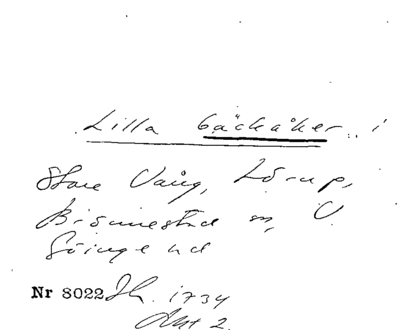 Lilla bäckåker i
Store Vång, Lörup,
Brönnestad sn, V.
Göinge hd
Nr 8022 Jb. 1734
Akt 2.